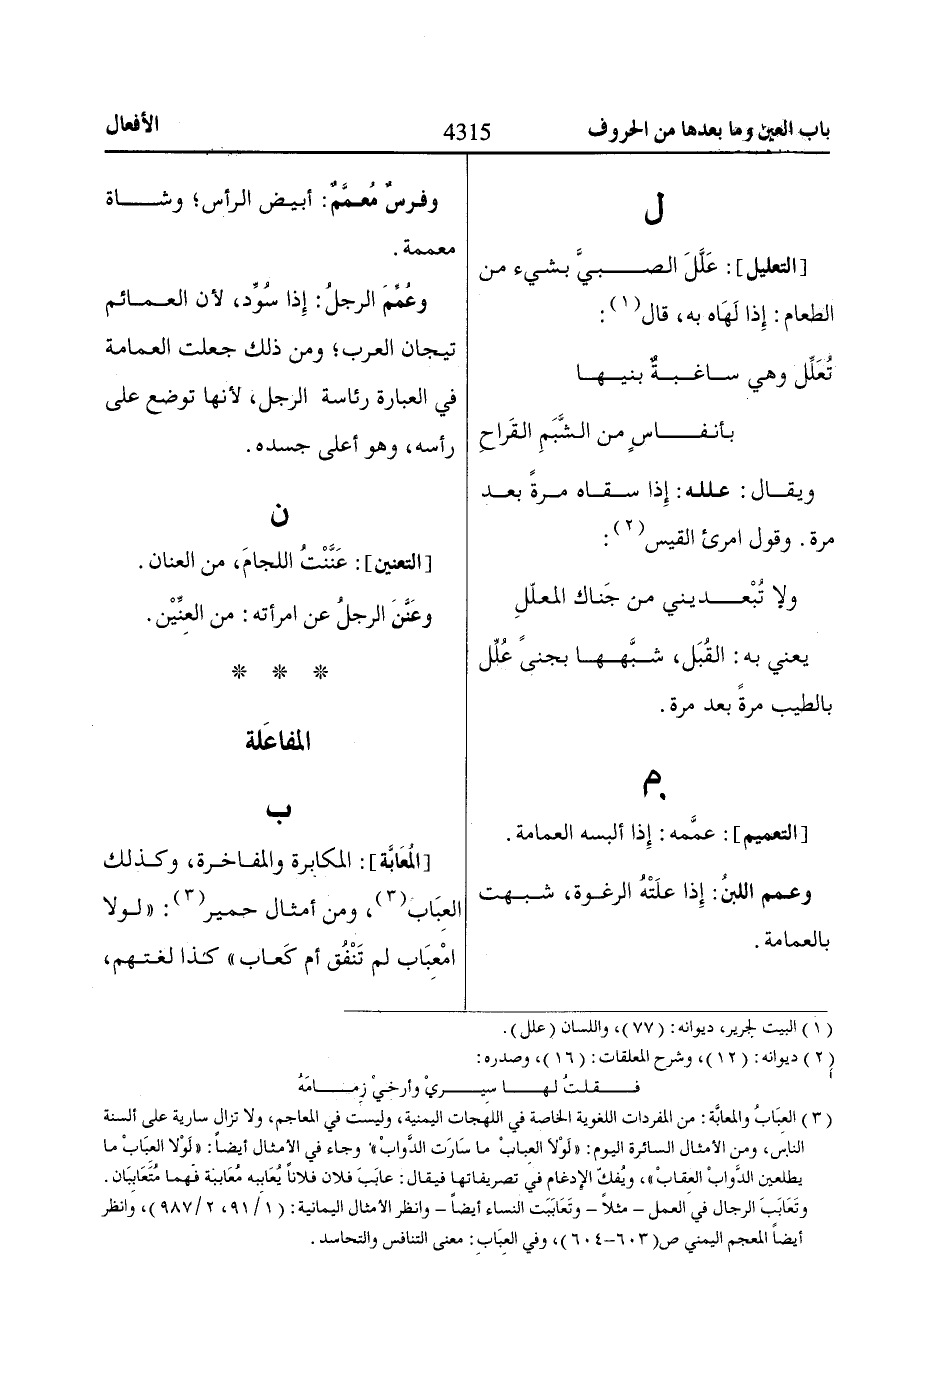 باب العين وما بعدها من الحروف
4315
الأفعال
ل
[التعليل]: عَلَّلَ الصبيَّ بشيء من
الطعام: إذا لَهَاه به، قال(١):
تُعَلِّل وهي ساغبةٌ بنيها
بأنفاسٍ من الشَّبَمِ القَراحِ
ويقال: علله: إذا سقاه مرةً بعد
مرة. وقول امرئ القيس(٢):
ولا تُبْعديني من جَناك المعلّلِ
يعني به: القُبَل، شبَّهها بجنىً عُلِّل
بالطيب مرةً بعد مرة.
م
[التعميم]: عمَّمه: إذا ألبسه العمامة.
وعمم اللبنُ: إذا علَتْهُ الرغوة، شبهت
بالعمامة.
وفرسٌ مُعمَّمٌ: أبيض الرأس؛ وشاة
معممة.
وعُمِّمَ الرجلُ: إذا سُوِّد، لأن العمائم
تيجان العرب؛ ومن ذلك جعلت العمامة
في العبارة رئاسة الرجل، لأنها توضع على
رأسه، وهو أعلى جسده.
ن
[التعنين]: عَنَّنْتُ اللجامَ، من العنان.
وعَنَّنَ الرجلُ عن امرأته: من العنِّيْن.
* * *
المفاعَلة
ب
[المُعَابَّة]: المكابرة والمفاخرة، وكذلك
العبَاب(٣)، ومن أمثال حمير(٣): «لولا
امْعِبَاب لم تَنْفُق أم كَعاب» كذا لغتهم،
(١) البيت لجرير، ديوانه: (٧٧)، واللسان (علل).
(٢) ديوانه: (١٢)، وشرح المعلقات: (١٦)، وصدره:
فقلتُ لها سيريْ وأرخيْ زمامَهُ
(٣) العبَابُ والمعابَّة: من المفردات اللغوية الخاصة في اللهجات اليمنية، وليست في المعاجم، ولا تزال سارية على ألسنة
الناس، ومن الأمثال السائرة اليوم: «لَوْلا العبابْ ما سارَت الدَّوابْ» وجاء في الأمثال أيضاً: «لَوْلا العبَابْ ما
يطلعين الدَّوابْ العقاب»، ويُفكّ الإدغام في تصريفاتها فيقال: عابَبَ فلان فلاناً يُعَابِبه مُعَابَبة فهما مُتَعَابِبان.
وتَعَابَبَ الرجال في العمل - مثلاً - وتَعَابَبَت النساء أيضاً - وانظر الأمثال اليمانية: (٩١/١، ٩٨٧/٢)، وانظر
أيضاً المعجم اليمني ص(٦٠٣-٦٠٤)، وفي العبَاب: معنى التنافس والتحاسد.